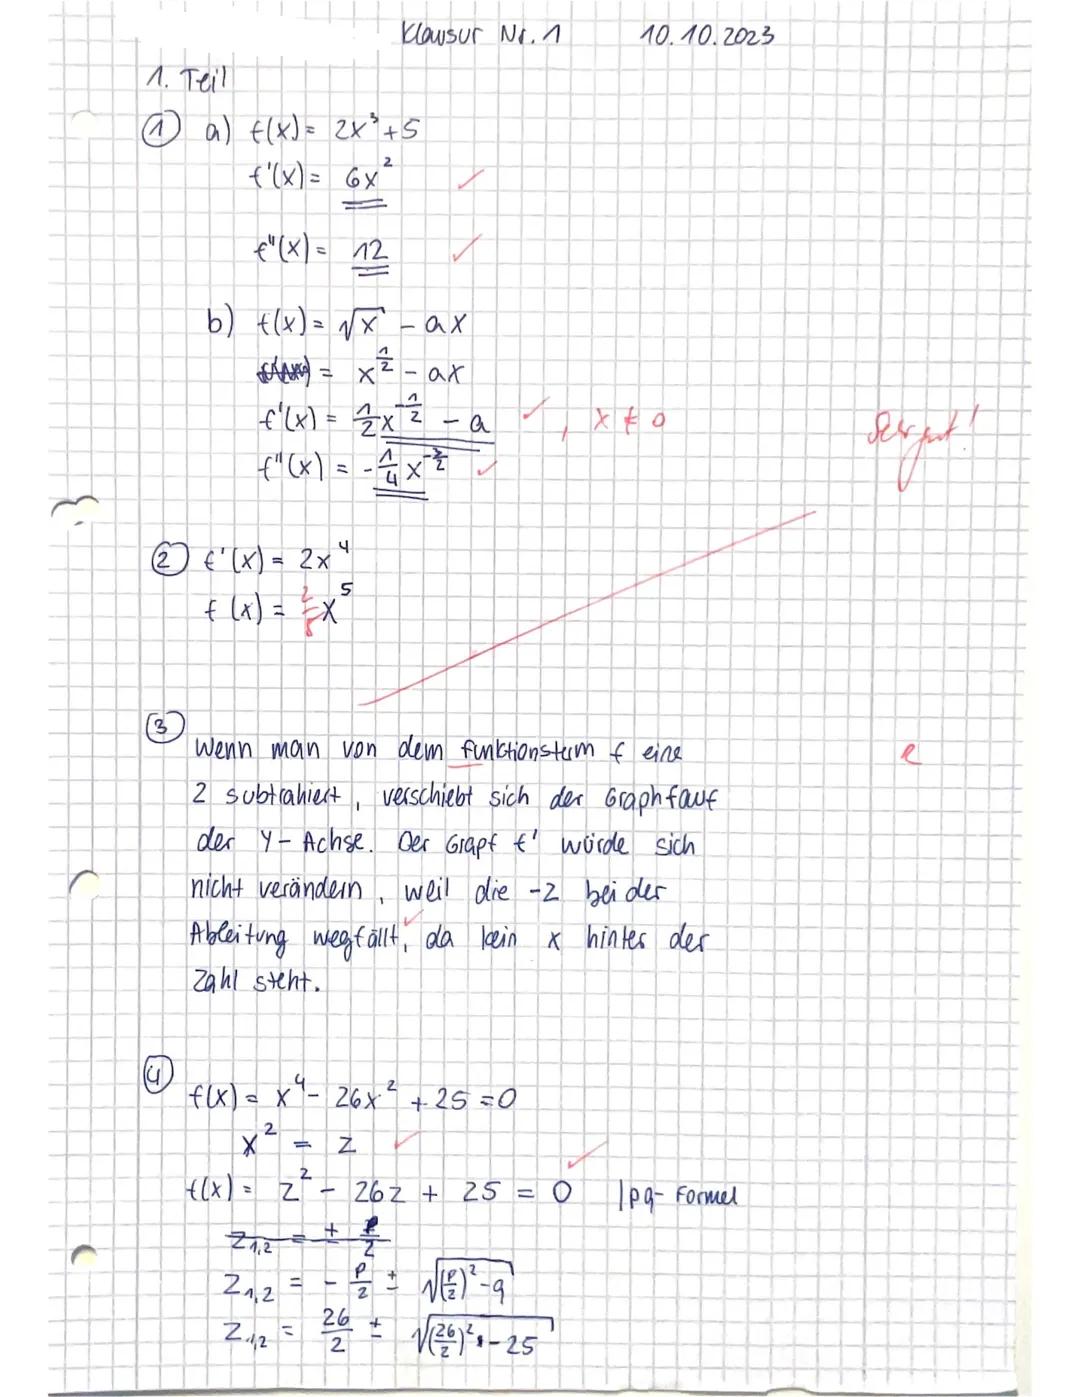 Klausur Nr. 1 10.10.2023
1. Teil
① a) f(x) = 2x³ + 5
f'(x) = 6x² ✓
f''(x) = 12 ✓
b) f(x) = √x - ax
= x^(1/2) - ax
f'(x) = 1/2 x^(-1/2) - a ✓, x ≠ 0
Sehr gut!
f''(x) = -1/4 x^(-3/2) ✓
② f'(x) = 2x⁴
f(x) = 2/5 x⁵
③
Wenn man von dem Funktionsterm f eine
R
2 subtrahiert, verschiebt sich der Graph f auf
der Y-Achse. Der Grapf f' würde sich
nicht verändern, weil die -2 bei der
Ableitung wegfällt, ✓ da kein x hinter der
Zahl steht.
④
f(x) = x⁴ - 26x² + 25 = 0
x² = z ✓
f(x) = z² - 26z + 25 = 0 ✓ | pq-Formel
z₁,₂ = ± p/2
z₁,₂ = - p/2 ± √((p/2)² - q)
z₁,₂ = 26/2 ± √((26/2)² - 25)